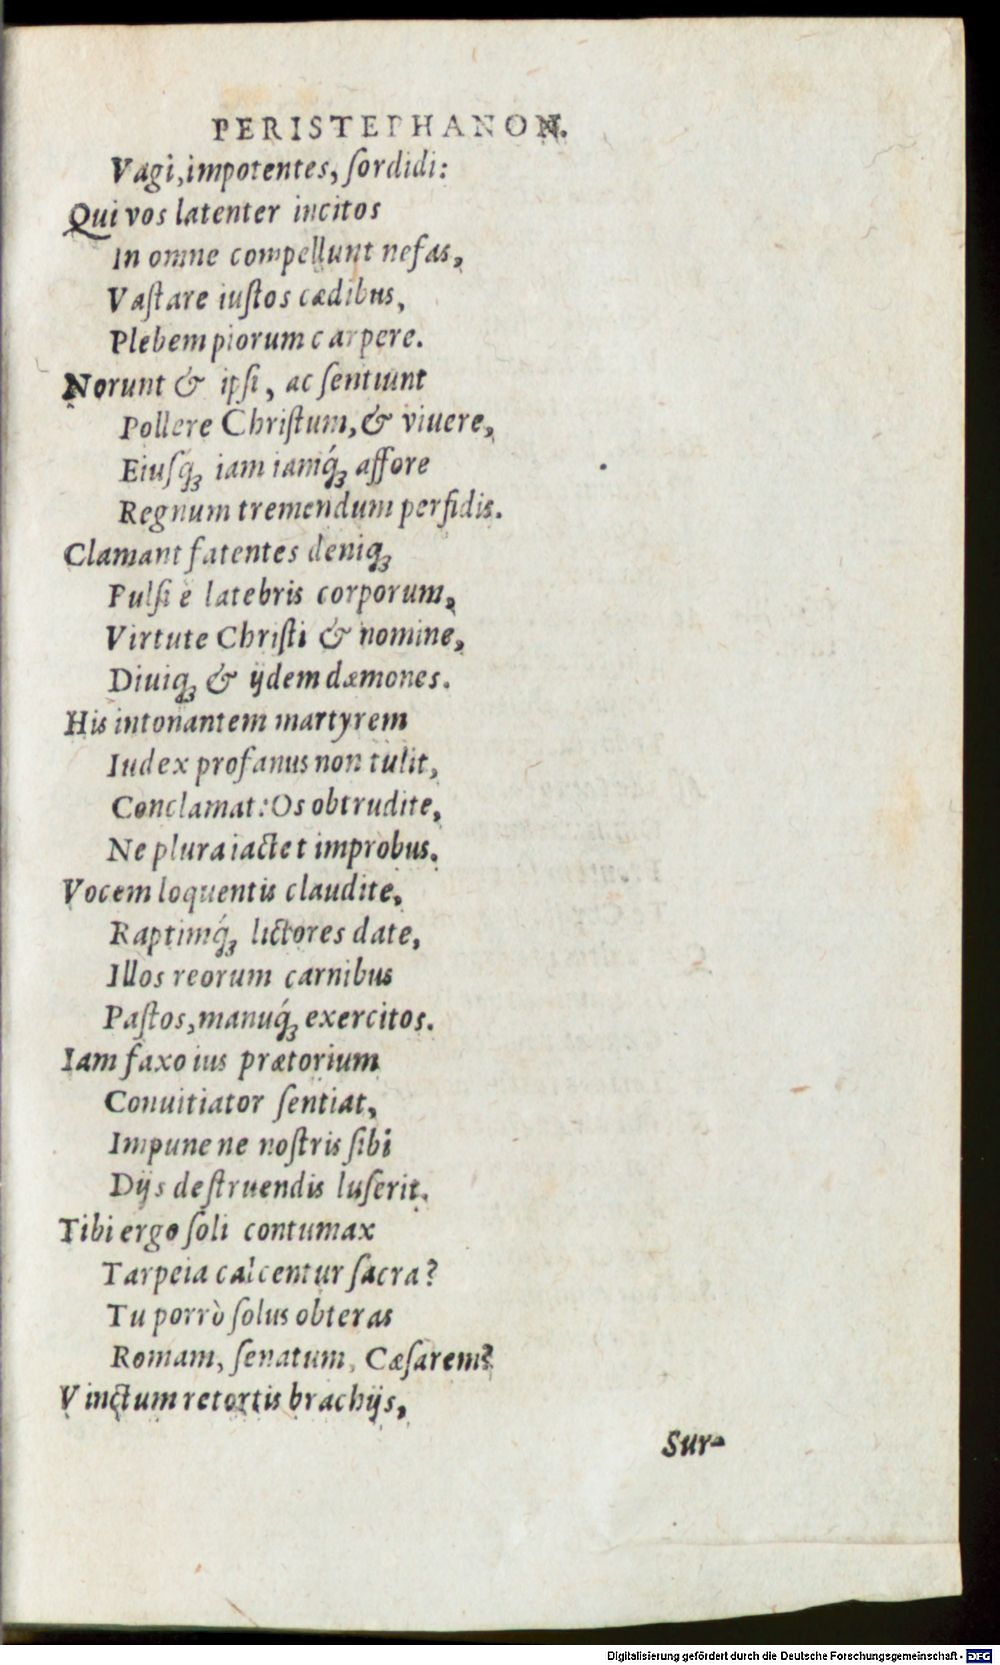 PERISTEPHANON.
Vagi, impotentes, ſordidi:
Qui vos latenter incitos
In omne compellunt nefas,
Vaſtare iuſtos cædibus,
Plebem piorum carpere.
Norunt & ipſi, ac ſentiunt
Pollere Chriſtum, & viuere,
Eiuſq́ꝫ iam iamq́ꝫ affore
Regnum tremendum perfidis.
Clamant fatentes deniqꝫ
Pulſi e latebris corporum,
Virtute Chriſti & nomine,
Diuiqꝫ & ijdem dæmones.
His intonantem martyrem
Iudex profanus non tulit,
Conclamat: Os obtrudite,
Ne plura iactet improbus.
Vocem loquentis claudite,
Raptimq́ꝫ lictores date,
Illos reorum carnibus
Paſtos, manuq́ꝫ exercitos.
Iam faxo ius prætorium
Conuitiator ſentiat,
Impune ne noſtris ſibi
Dijs deſtruendis luſerit.
Tibi ergo ſoli contumax
Tarpeia calcentur ſacra?
Tu porrò ſolus obteras
Romam, ſenatum, Cæſarem?
Vinctum retortis brachijs,
Sur-
Digitalisierung gefördert durch die Deutsche Forschungsgemeinschaft - DFG